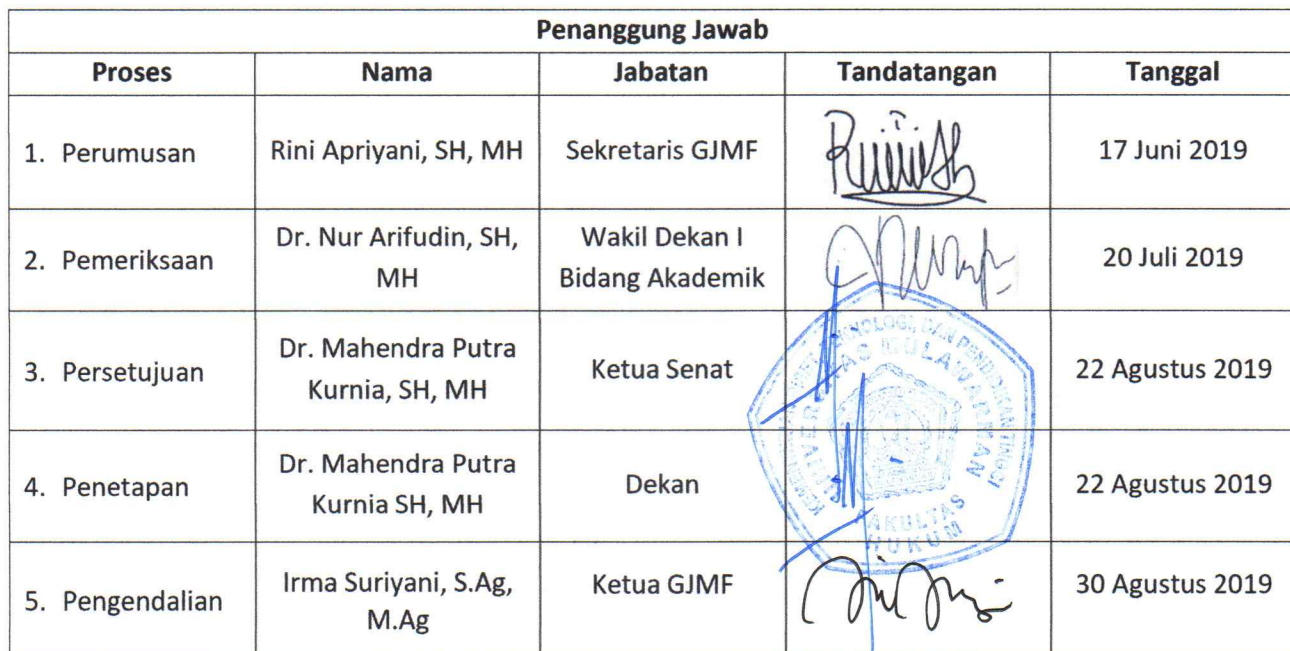 Penanggung Jawab
Proses Nama Jabatan Tandatangan Tanggal
1. Perumusan Rini Apriyani, SH, MH Sekretaris GJMF 17 Juni 2019
2. Pemeriksaan Dr. Nur Arifudin, SH, MH Wakil Dekan I Bidang Akademik 20 Juli 2019
3. Persetujuan Dr. Mahendra Putra Kurnia, SH, MH Ketua Senat 22 Agustus 2019
4. Penetapan Dr. Mahendra Putra Kurnia SH, MH Dekan 22 Agustus 2019
5. Pengendalian Irma Suriyani, S.Ag, M.Ag Ketua GJMF 30 Agustus 2019
TEKNOLOGI, DAN PENDIDIKAN TINGGI
UNIVERSITAS MULAWARMAN
FAKULTAS
HUKUM